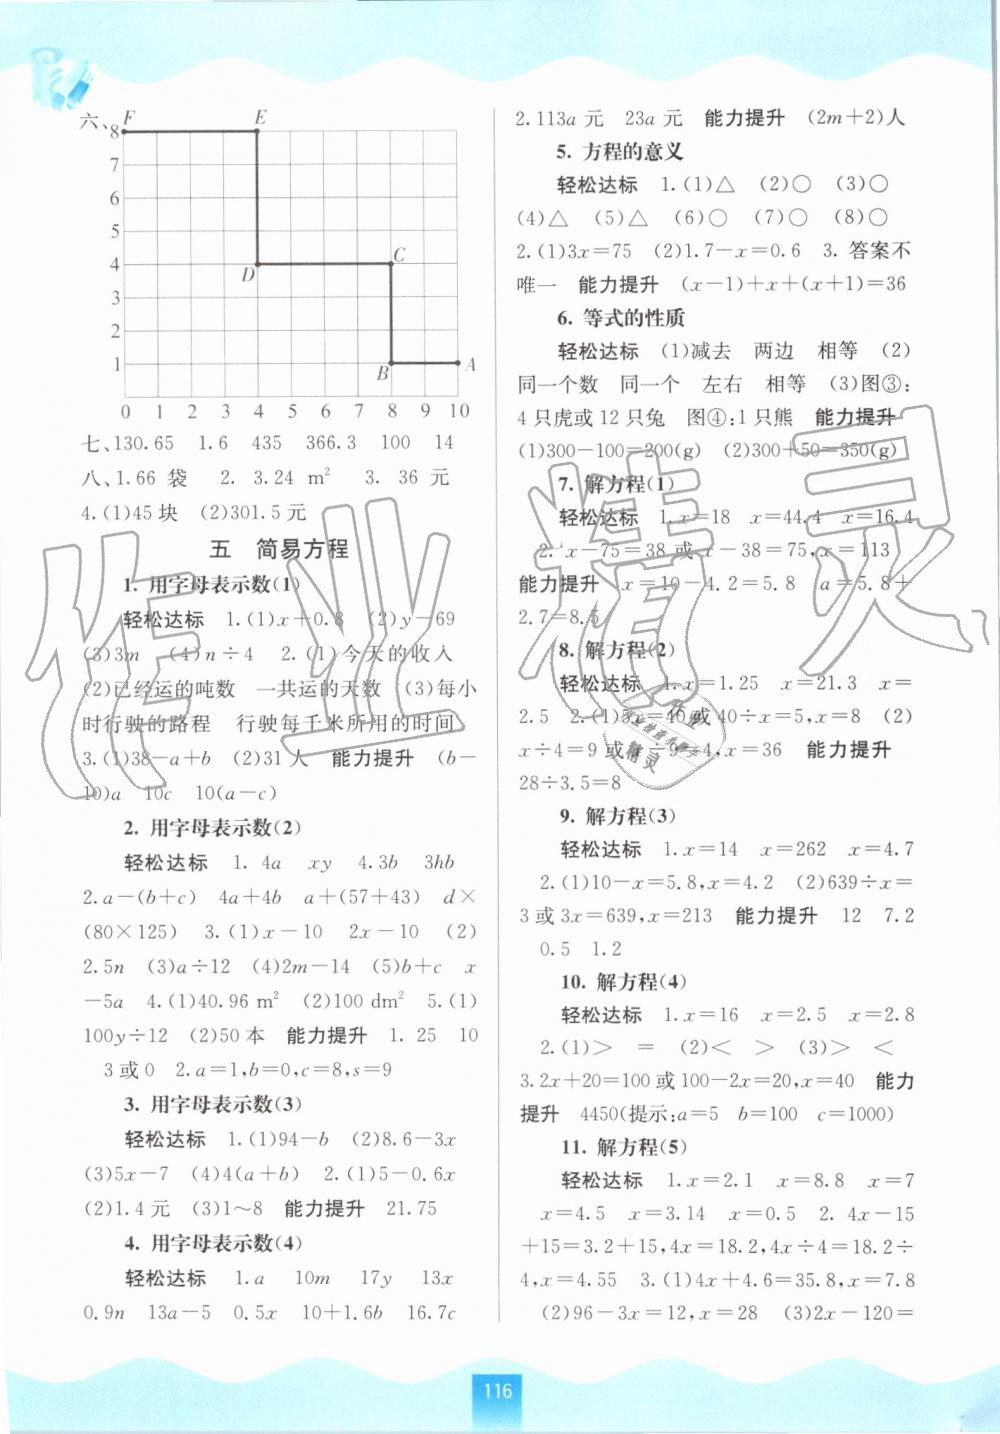 六、
F E
8
7
6
5
4 D C
3
2
1 B A
0 1 2 3 4 5 6 7 8 9 10
七、130.65 1.6 435 366.3 100 14
八、1.66 袋 2. 3.24 m² 3. 36 元
4.(1)45块 (2)301.5元
五 简易方程
1. 用字母表示数(1)
轻松达标 1.(1)x+0.8 (2)y-69
(3)3m (4)n÷4 2.(1)今天的收入
(2)已经运的吨数 一共运的天数 (3)每小
时行驶的路程 行驶每千米所用的时间
3.(1)38-a+b (2)31人 能力提升 (b-
10)a 10c 10(a-c)
2. 用字母表示数(2)
轻松达标 1. 4a xy 4.3b 3hb
2.a-(b+c) 4a+4b a+(57+43) d×
(80×125) 3.(1)x-10 2x-10 (2)
2.5n (3)a÷12 (4)2m-14 (5)b+c x
-5a 4.(1)40.96 m² (2)100 dm² 5.(1)
100y÷12 (2)50本 能力提升 1. 25 10
3或0 2.a=1,b=0,c=8,s=9
3. 用字母表示数(3)
轻松达标 1.(1)94-b (2)8.6-3x
(3)5x-7 (4)4(a+b) 2.(1)5-0.6x
(2)1.4元 (3)1～8 能力提升 21.75
4. 用字母表示数(4)
轻松达标 1.a 10m 17y 13x
0.9n 13a-5 0.5x 10+1.6b 16.7c
2.113a元 23a元 能力提升 (2m+2)人
5. 方程的意义
轻松达标 1.(1)△ (2)○ (3)○
(4)△ (5)△ (6)○ (7)○ (8)○
2.(1)3x=75 (2)1.7-x=0.6 3. 答案不
唯一 能力提升 (x-1)+x+(x+1)=36
6. 等式的性质
轻松达标 (1)减去 两边 相等 (2)
同一个数 同一个 左右 相等 (3)图③:
4只虎或12只兔 图④:1只熊 能力提升
(1)300-100=200(g) (2)300+50=350(g)
7. 解方程(1)
轻松达标 1.x=18 x=44.4 x=16.4
2. x-75=38或x-38=75,x=113
能力提升 x=10-4.2=5.8 a=5.8+
2.7=8.5
8. 解方程(2)
轻松达标 1.x=1.25 x=21.3 x=
2.5 2.(1)8x=40或40÷x=5,x=8 (2)
x÷4=9或x÷9=4,x=36 能力提升
28÷3.5=8
9. 解方程(3)
轻松达标 1.x=14 x=262 x=4.7
2.(1)10-x=5.8,x=4.2 (2)639÷x=
3或3x=639,x=213 能力提升 12 7.2
0.5 1.2
10. 解方程(4)
轻松达标 1.x=16 x=2.5 x=2.8
2.(1)> = (2)< > (3)> <
3.2x+20=100或100-2x=20,x=40 能力
提升 4450(提示:a=5 b=100 c=1000)
11. 解方程(5)
轻松达标 1.x=2.1 x=8.8 x=7
x=4.5 x=3.14 x=0.5 2. 4x-15
+15=3.2+15,4x=18.2,4x÷4=18.2÷
4,x=4.55 3.(1)4x+4.6=35.8,x=7.8
(2)96-3x=12,x=28 (3)2x-120=
116
作业精灵